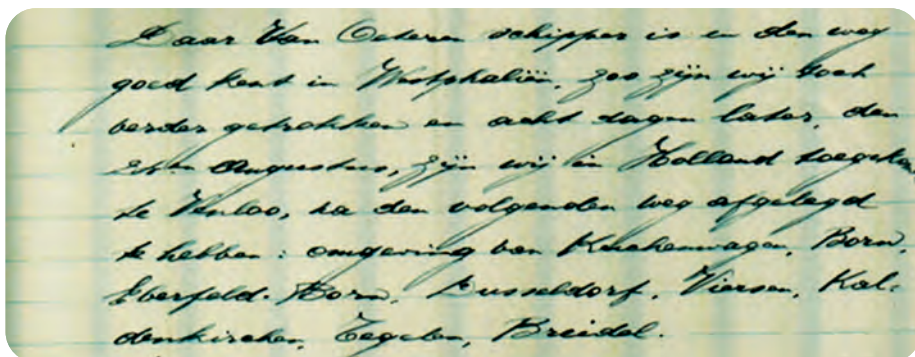 Daar Van Oeteren schipper is en den weg
goed kent in Westphaliën, zoo zijn wij toch
verder getrokken en acht dagen later, den
Augustus, zijn wij in Holland toegekomen
te Venloo, na den volgenden weg afgelegd
te hebben: omgeving van Born,
Eberfeld. Born, Dusseldorf, Viersen, Kal-
denkirchen, Tegelen, Breidel.